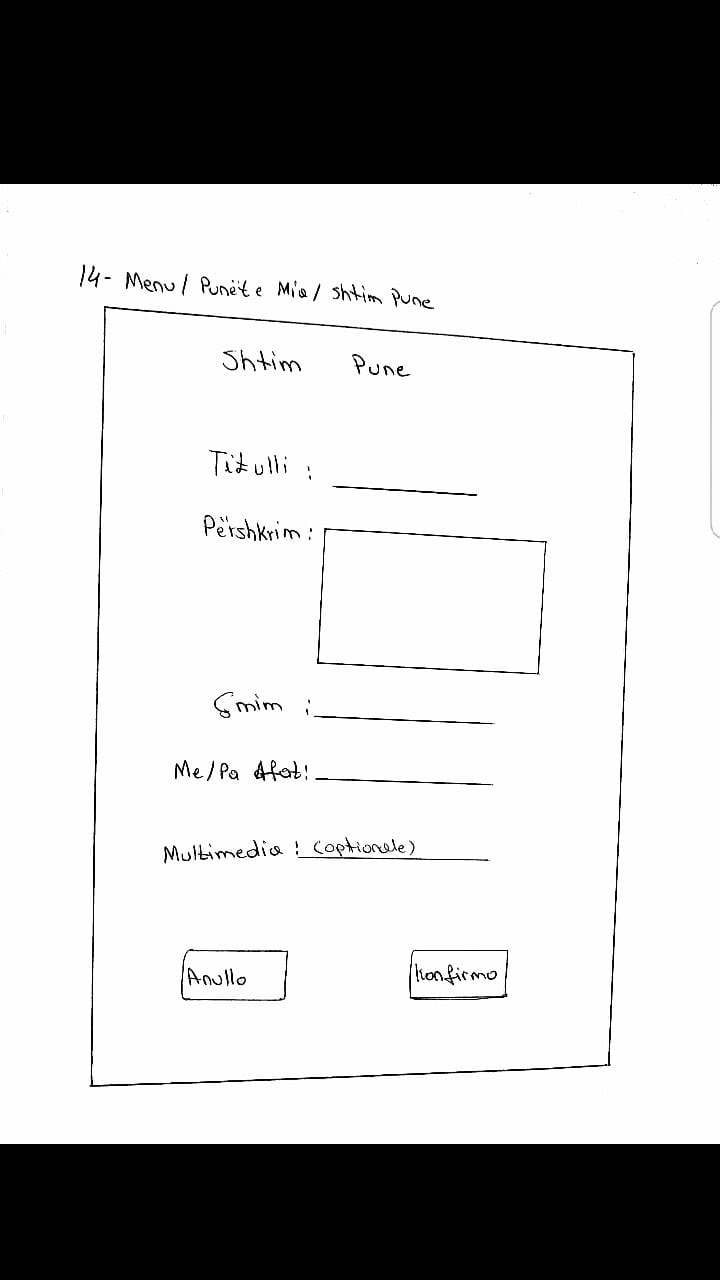 14- Menu / Punët e Mia / Shtim Pune
Shtim Pune
Titulli :
Përshkrim :
Çmim :
Me/Pa Afat:
Multimedia : (optionale)
Anullo Konfirmo